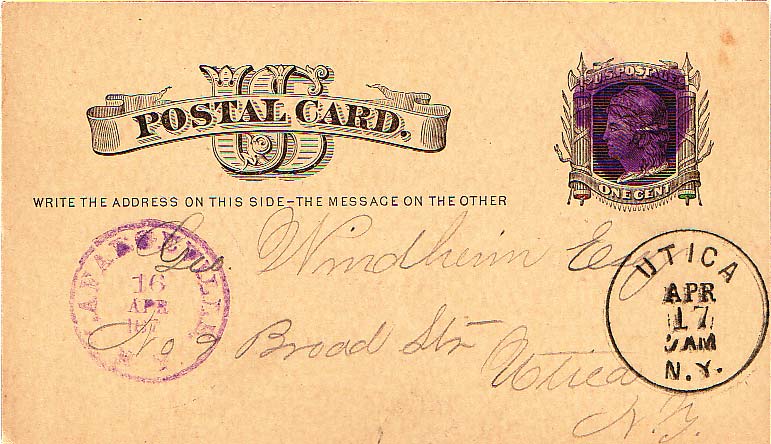 US
POSTAL CARD.
U.S. POSTAGE
ONE CENT
WRITE THE ADDRESS ON THIS SIDE–THE MESSAGE ON THE OTHER
Windheim Esq
No 2 Broad Str
Utica
N.Y.
16
APR
UTICA
APR
17
7AM
N.Y.